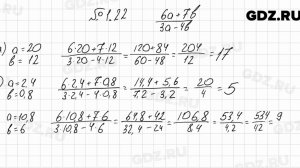 GDZ.RU
№1.22 (6a+7b)/(3a-4b)
a) a=20 b=12 (6·20+7·12)/(3·20-4·12) = (120+84)/(60-48) = 204/12 = 17
a=2,4 b=0,8 (6·2,4+7·0,8)/(3·2,4-4·0,8) = (14,4+5,6)/(7,2-3,2) = 20/4 = 5
a=10,8 b=6 (6·10,8+7·6)/(3·10,8-4·6) = (64,8+42)/(32,4-24) = 106,8/8,4 = 53,4/4,2 = 534/42 = 9